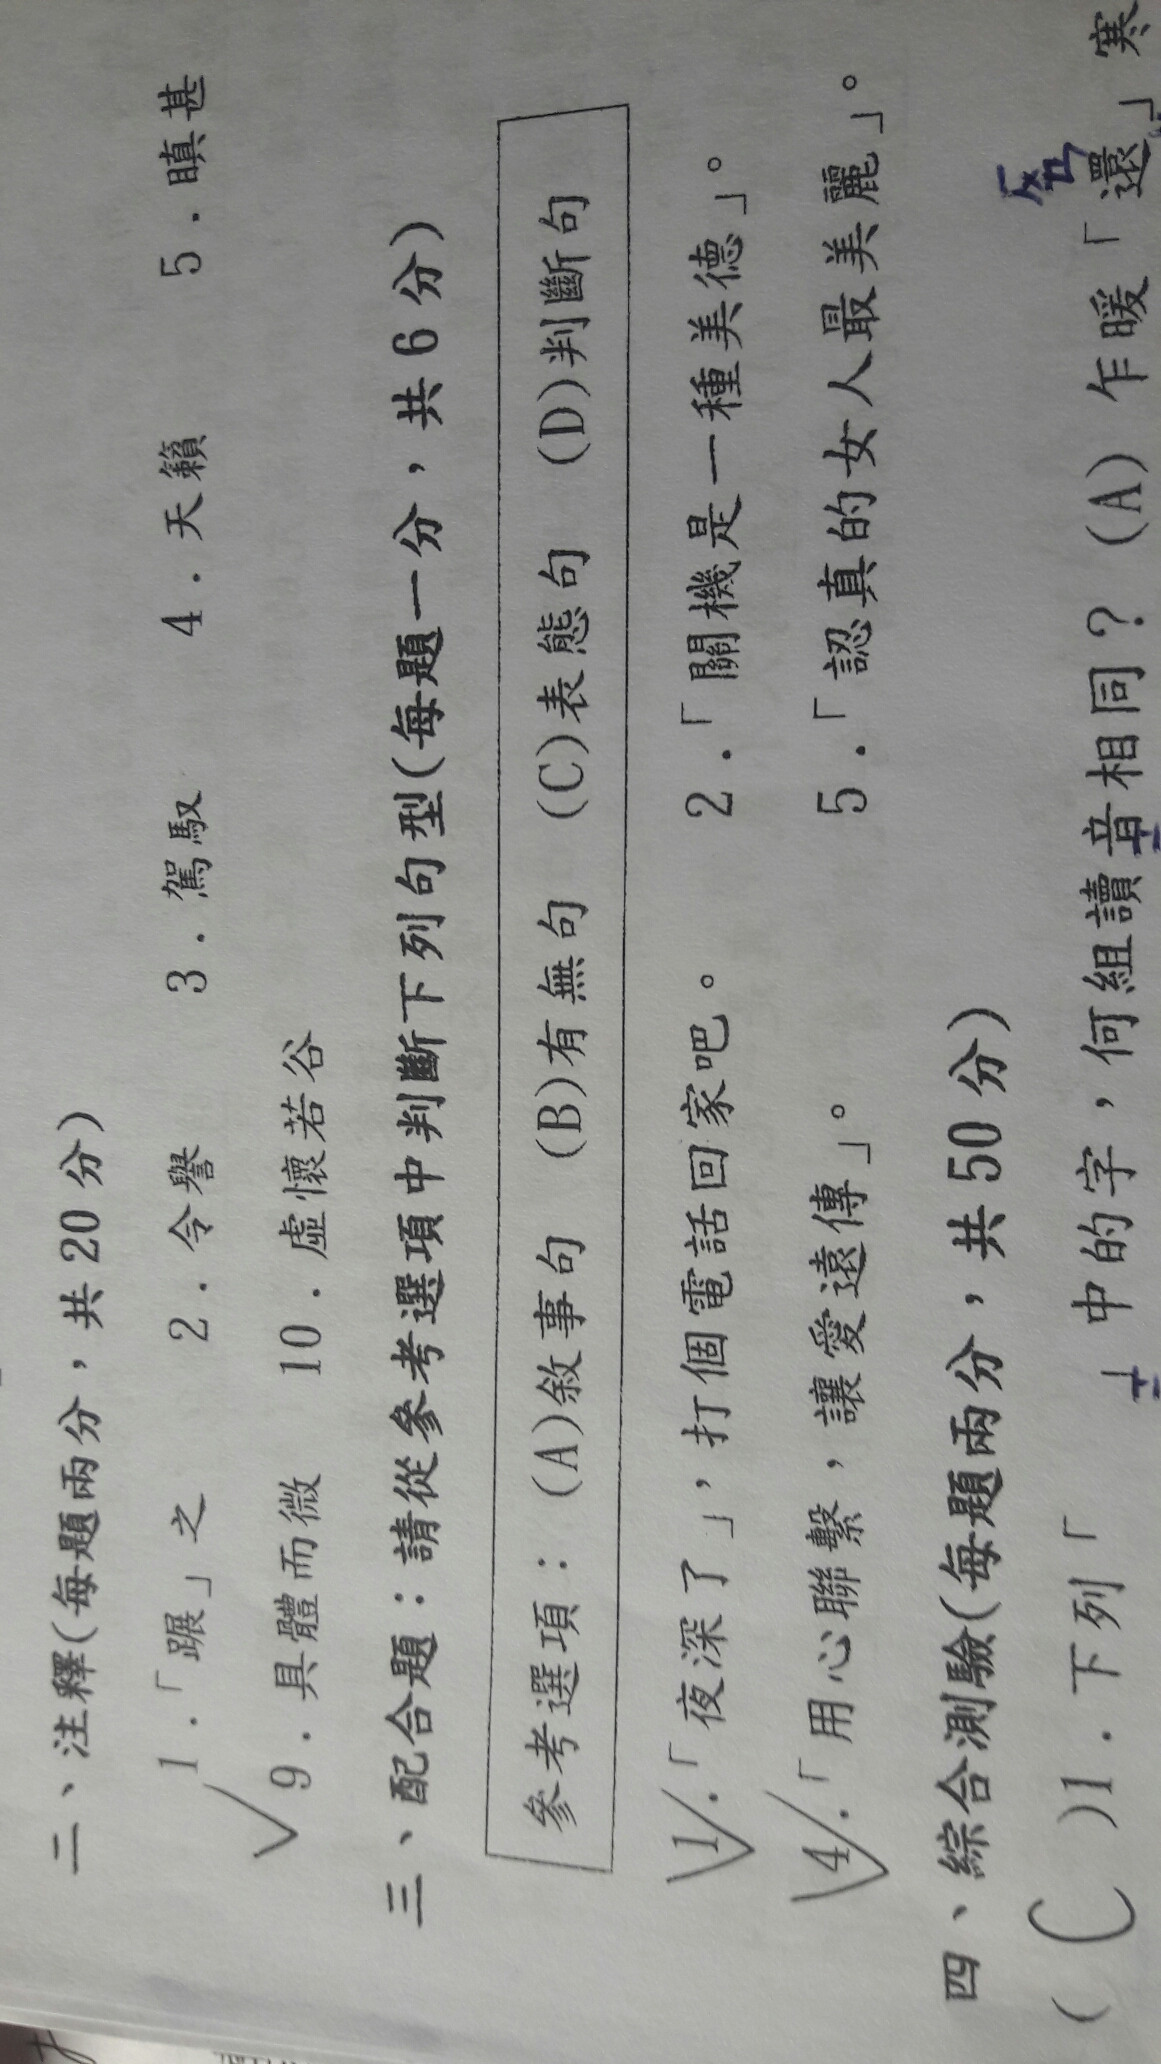 二、注釋(每題兩分，共20分)
1.「蹍」之 2.令譽 3.駕馭 4.天籟 5.瞋甚
9.具體而微 10.虛懷若谷
三、配合題：請從參考選項中判斷下列句型(每題一分，共6分)
參考選項：(A)敘事句 (B)有無句 (C)表態句 (D)判斷句
1.「夜深了」，打個電話回家吧。 2.「關機是一種美德」。
4.「用心聯繫，讓愛遠傳」。 5.「認真的女人最美麗」。
四、綜合測驗(每題兩分，共50分)
( C )1.下列「 」中的字，何組讀音相同？(A) 乍暖「還」寒